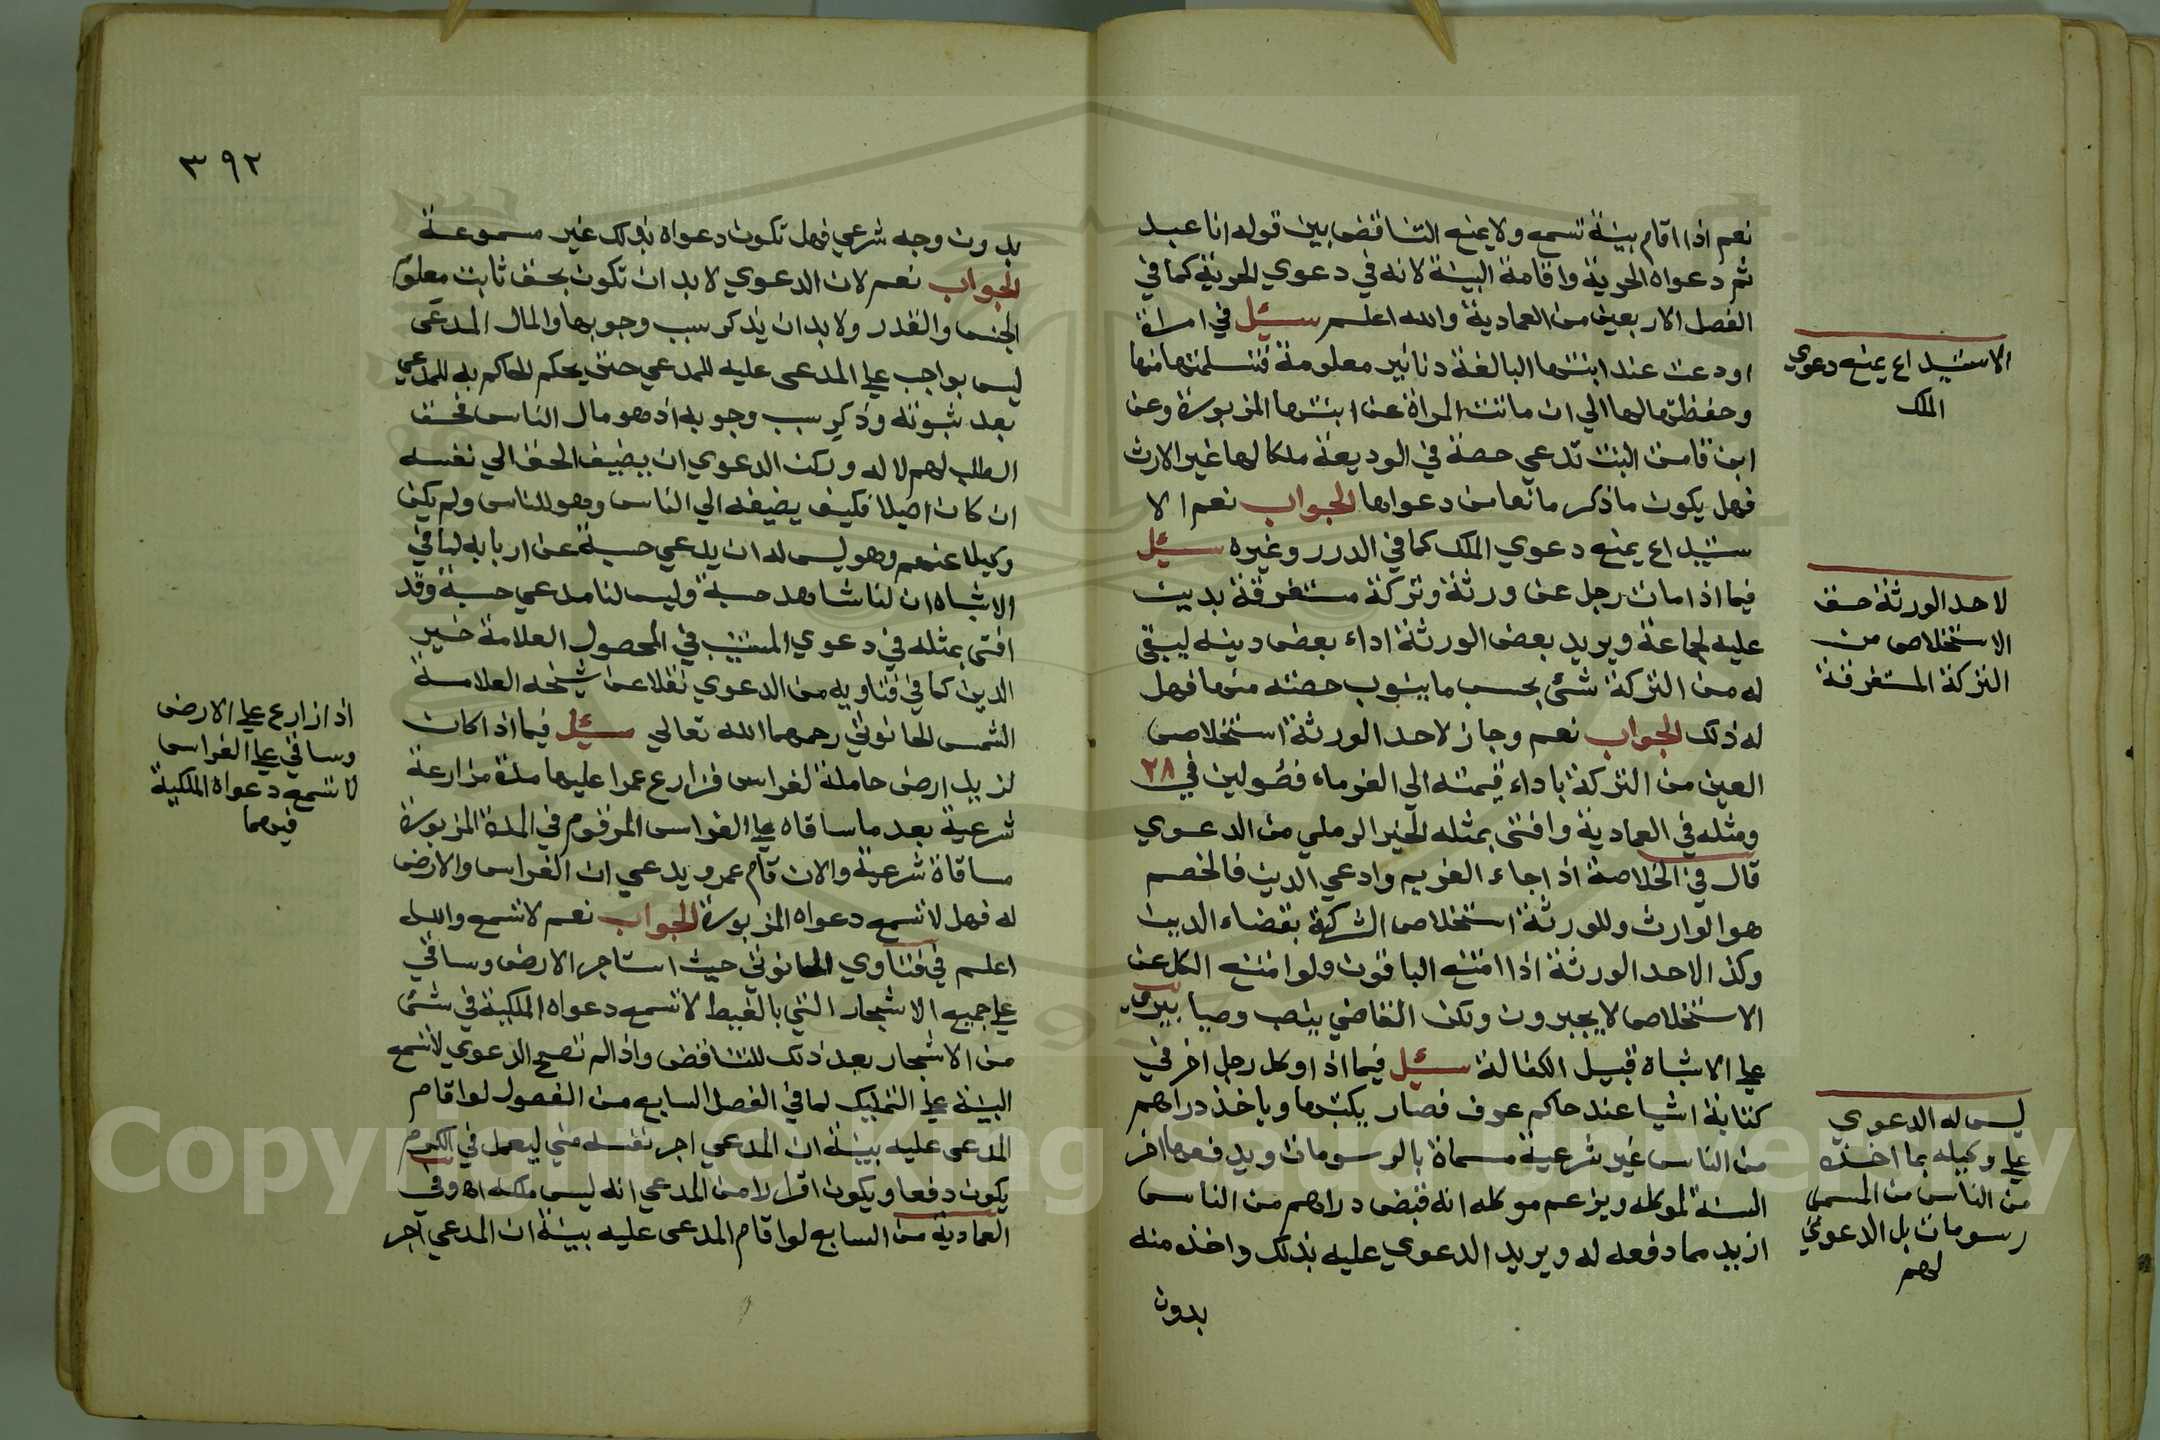 نعم اذا اقام بينة تسمع ولا يمنع التناقض بين قوله انا عبد
ثم دعواه الحرية واقامة البينة لانه في دعوي الحرية كما في
الفصل الاربعين من العمادية والله اعلم سئل في امراة
اودعت عند ابنتها البالغة دنانير معلومة فتسلمتها منها
وحفظتها لها الي ان ماتت المراة عن ابنتها المزبورة وعن
ابن قامت البنت تدعي حصة في الوديعة ملكا لها غير الارث
فهل يكون ما ذكر مانعا من دعواها الجواب نعم الا
ستيداع يمنع دعوي الملك كما في الدرر وغيره سئل
فيما اذا مات رجل عن ورثة وتركة مستغرقة بدين
عليه لجماعة ويريد بعض الورثة اداء بعض دينه ليبقي
له من التركة شئ بحسب ما ينوب حصته منها فهل
له ذلك الجواب نعم وجاز لاحد الورثة استخلاص
العين من التركة باداء قيمته الي الغرماء فصولين في ٢٨
ومثله في العمادية وافتى بمثله الخير الرملي من الدعوي
قال في الخلاصة اذا جاء الغريم وادعي الدين فالخصم
هو الوارث وللورثة استخلاص التركة بقضاء الدين
وكذا لاحد الورثة اذا امتنع الباقون ولو امتنع الكل عن
الاستخلاص لا يجبرون ولكن القاضي ينصب وصيا بيري
علي الاشباة قبيل الكفالة سئل فيما اذا وكل رجل اخر في
كتابة اشيا عند حاكم عرف فصار يكتبها وياخذ دراهم
من الناس غير شرعية مسماة بالرسومات ويدفعها اخر
السنة لموكله ويزعم موكله انه قبض دراهم من الناس
ازيد مما دفعه له ويريد الدعوي عليه بذلك واخذه منه
بدون
الاستيداع يمنع دعوي
الملك
لاحد الورثة حق
الاستخلاص من
التركة المستغرقة
ليس له الدعوي
علي وكيله بما اخذه
من الناس من المسمي
رسومات بل الدعوي
لهم
٣٩٢
بدون وجه شرعي فهل تكون دعواه بذلك غير مسموعة
الجواب نعم لان الدعوي لا بد ان تكون بحق ثابت معلوم
الجنس والقدر ولا بد ان يذكر سبب وجوبها والمال المدعى
ليس بواجب علي المدعى عليه للمدعي حتى يحكم الحاكم به للمدعي
بعد ثبوته وذكر سبب وجوبه اذ هو مال الناس فحق
الطلب لهم لا له وركن الدعوي ان يضيف الحق الي نفسه
ان كان اصيلا فكيف يضيفه الي الناس وهو للناس ولم يكن
وكيلا عنهم وهو ليس له ان يدعي حسبة عن اربابه لما في
الاشباه ان لنا شاهد حسبة وليس لنا مدعي حسبة وقد
افتى بمثله في دعوي المتسبب في المحصول العلامة خير
الدين كما في فتاويه من الدعوي نقلا عن شيخه العلامة
الشمس الحانوتي رحمهما الله تعالي سئل فيما اذا كان
لزيد ارض حاملة لغراس فزارع عمرا عليها مدة مزارعة
شرعية بعد ما ساقاه علي الغراس المرقوم في المدة المزبورة
مساقاة شرعية والان قام عمرو يدعي ان الغراس والارض
له فهل لا تسمع دعواه المزبورة الجواب نعم لا تسمع والله
اعلم في فتاوي الحانوتي حيث استاجر الارض وساقي
علي جميع الاشجار التي بالغيط لا تسمع دعواه الملكية في شئ
من الاشجار بعد ذلك للتناقض واذا لم تصح الدعوي لا تسمع
البينة علي التمليك لما في الفصل السابع من الفصول لو اقام
المدعى عليه بينة ان المدعي اجر نفسه مني ليعمل في الكرم
يكون دفعا ويكون اقرارا من المدعي انه ليس ملكه اه وفي
العمادية من السابع لو اقام المدعى عليه بينة ان المدعي اجر
اذا زارع علي الارض
وساقي علي الغراس
لا تسمع دعواه الملكية
فيهما
Copyright © King Saud University